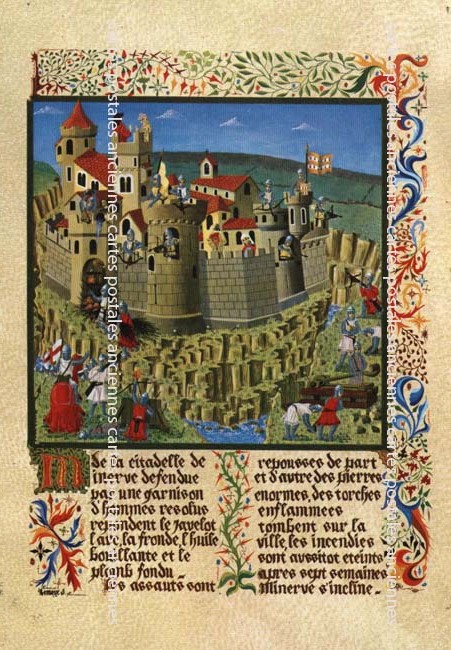 De la citadelle de
Minerve defendue
par une garnison
d'hommes resolus
repondent le javelot
l'arc, la fronde, l'huile
bouillante et le
plomb fondu_
les assauts sont
repousses de part
et d'autre des pierres
enormes, des torches
enflammees
tombent sur la
ville, les incendies
sont aussitot eteints
apres sept semaines
Minerve s'incline_
cartes postales anciennes cartes postales anciennes cartes postales anciennes
cartes postales anciennes cartes postales anciennes cartes postales anciennes